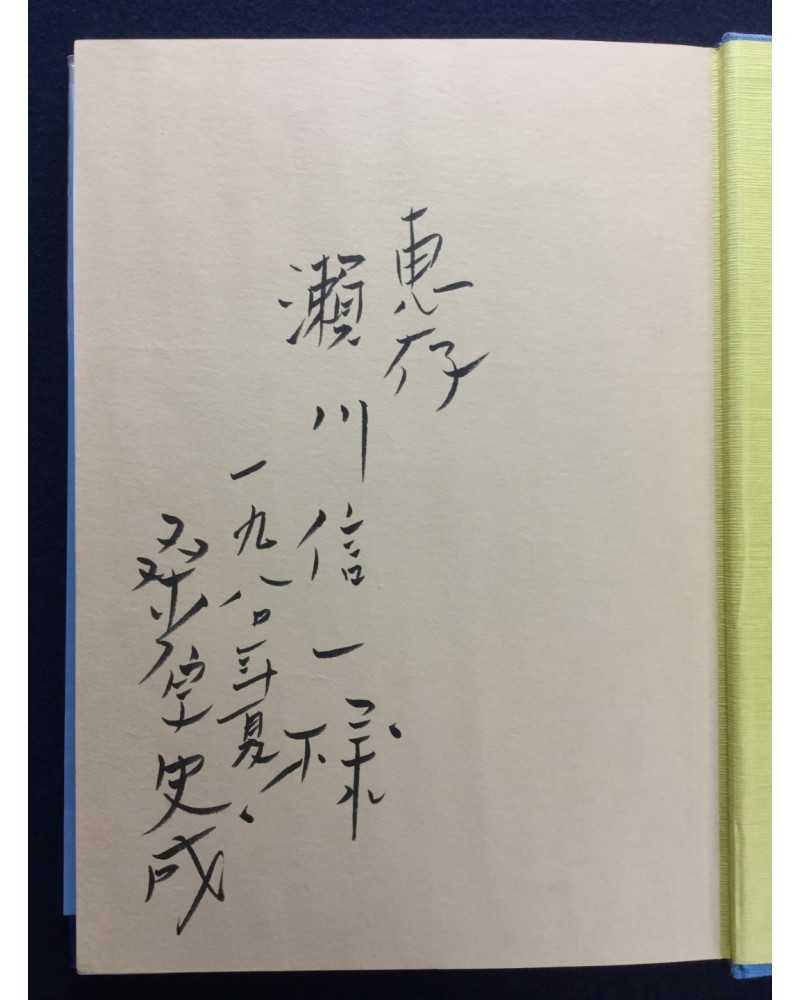 恵存
瀬川信一様
一九八〇年夏、
桑原史成